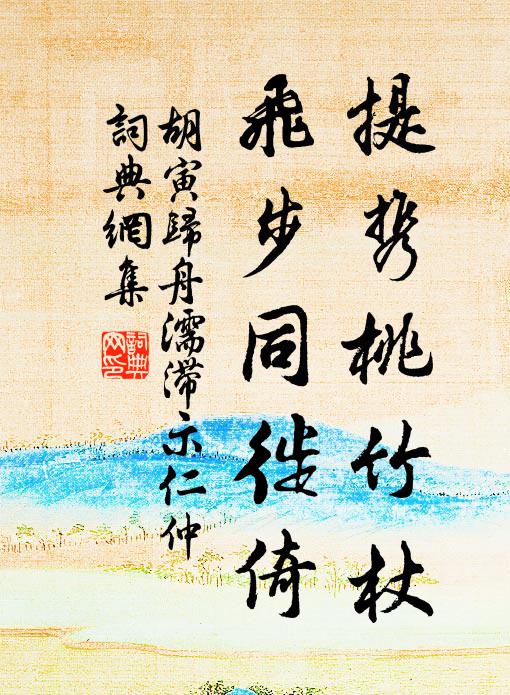 提携桃竹杖
飛步同徙倚
胡寅歸舟濡滯示仁仲
詞典網集
詞典
網印